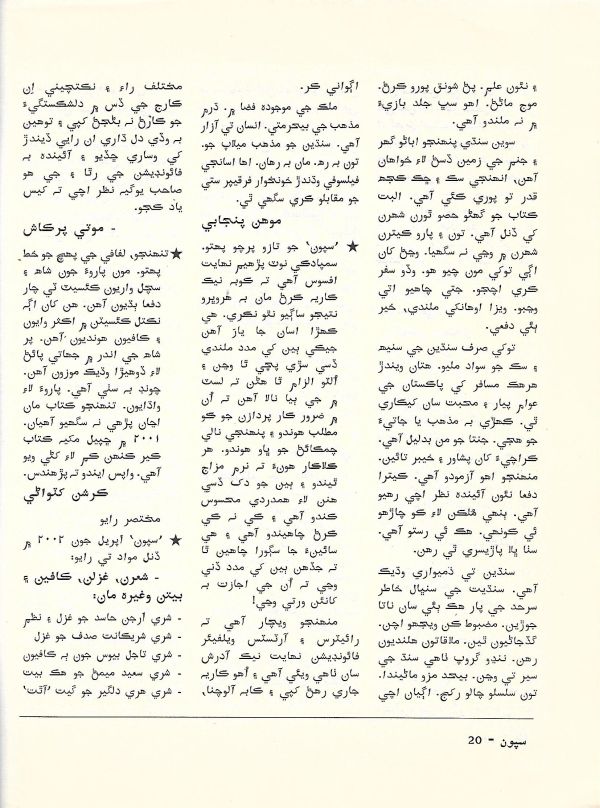 ۽ نئون علم. پڻ شونق پورو ڪرڻ.
موج ماڻڻ. اهو سڀ جلد بازيءَ
۾ نہ ملندو آهي.
سوين سنڌي پنهنجو اباڻو گهر
۽ جنم جي زمين ڏسڻ لاءِ خواهان
آهن. انهنجي سڪ ۽ ڇڪ ڪجهہ
قدر تو پوري ڪئي آهي. البت
ڪتاب جو گهڻو حصو ٿورن شهرن
کي ڏنل آهي. تون ۽ پارو ڪيترن
شهرن ۾ وڃي نہ سگهيا. وڃڻ کان
اڳي توکي مون چيو هو. وڏو سفر
ڪري اچجو. جتي چاهيو اتي
وڃبو. ويزا اوهانکي ملندي، خير
ٻئي دفعي.
توکي صرف سنڌين جي سنيهہ
۽ سڪ جو سواد مليو. هتان ويندڙ
هرهڪ مسافر کي پاڪستان جي
عوام پيار ۽ محبت سان سيڪاري
ٿي. ڪهڙي بہ مذهب يا جاتيءَ
جو هجي. جنتا جو من بدليل آهي.
ڪراچيءَ کان پشاور ۽ خيبر تائين.
منهنجو اهو آزمودو آهي. ڪيترا
دفعا نئون آئيندہ نظر اچي رهيو
آهي. ٻنهي مُلڪن لاءِ ڪو چاڙهو
ئي ڪونهي. هڪ ئي رستو آهي.
سٺا ڀلا پاڙيسري ٿي رهن.
سنڌين تي ذميواري وڌيڪ
آهي. سنڌيت جي سنڀال خاطر
سرحد جي پار هڪ ٻئي سان ناتا
جوڙين. مضبوط ڪن ويجهو اچن.
گڏجاڻيون ٿين. ملاقاتون هلنديون
رهن. ننڍو گروپ ٺاهي سنڌ جي
سير تي وڃن. بيحد مزو ماڻيندا.
تون سلسلو چالو رکج. اڳيان اچي
اڳواڻي ڪر.
ملڪ جي موجودہ فضا ۾. ڌرم
مذهب جي بيحرمتي. انسان تي آزار
آهي. سنڌين جو مذهب ميلاپ جو.
تون بہ رهہ. مان بہ رهان. اها اسانجي
فيلسوفي وڌندڙ خونخوار فرقيپر ستي
جو مقابلو ڪري سگهي ٿي.
موهن پنجابي
★ ’سپون‘ جو تازو پرچو پهتو.
سمپادڪي نوٽ پڙهيم نهايت
افسوس آهي تہ ڪوبہ نيڪ
ڪاريہ ڪرڻ مان بہ هُروڀرو
نتيجو ساڳيو نٿو نڪري. هي
ڪهڙا اسان جا يار آهن
جيڪي ٻين کي مدد ملندي
ڏسي سڙي پڇي ٿا وڃن ۽
اُلٽو الزام ٿا هڻن تہ لسٽ
۾ جي ٻيا نالا آهن تہ اُن
۾ ضرور ڪار پردازن جو ڪو
مطلب هوندو ۽ پنهنجي نالي
چمڪائڻ جو ڀاو هوندو. هر
ڪلاڪار هونءَ تہ نرم مزاج
ٿيندو ۽ ٻين جو دک ڏسي
هنن لاءِ همدردي محسوس
ڪندو آهي ۽ ڪي نہ ڪي
ڪرڻ چاهيندو آهي ۽ هي
سائينءَ جا سڳورا چاهين ٿا
تہ جڏهن ٻين کي مدد ڏني
وڃي تہ اُن جي اجازت بہ
کانئن ورتي وڃي!
منهنجو ويچار آهي تہ
رائيٽرس ۽ آرٽسٽس ويلفيئر
فائونڊيشن نهايت نيڪ آدرش
سان ٺاهي ويئي آهي ۽ اُهو ڪاريہ
جاري رهڻ کپي ۽ ڪابہ آلوچنا،
مختلف راءِ ۽ نڪتچيني اِن
ڪارج جي ڏس ۾ دلشڪستگيءَ
جو ڪارڻ نہ بڻجڻ کپي ۽ توهين
بہ وڏي دل ڌاري ان رايي ڏيندڙ
کي وساري ڇڏيو ۽ آئيندہ بہ
فائونڊيشن جي رٿا ۽ جي هو
صاحب يوگيہ نظر اچي تہ کيس
ياد ڪجو.
- موتي پرڪاش
★ تنهنجو، لفافي جي پهچ جو خط
پهتو. مون پاروءَ جون شاھ ۽
سچل واريون ڪئسيٽ تي چار
دفعا ٻڌيون آهن. هن کان اڳہ
نڪتل ڪئسيٽن ۾ اڪثر وايون
۽ ڪافيون هونديون آهن. پر
شاھ جي اندر ۾ جهاتي پائڻ
لاءِ ڏوهيڙا وڌيڪ موزون آهن.
چونڊ بہ سٺي آهي. پاروءَ لاءِ
واڌايون. تنهنجو ڪتاب مان
اڃان پڙهي نہ سگهيو آهيان.
۲۰۰۱ ۾ ڇپيل مکيہ ڪتاب
ڪير ڪنهن ڪم لاءِ کڻي ويو
آهي. واپس ايندو تہ پڙهندس.
ڪرشن کٽواڻي
مختصر رايو
★ ’سپون‘ اپريل جون ۲۰۰۲ ۾
ڏنل مواد تي رايو:
- شعرن، غزلن، ڪافين ۽
بيتن وغيرہ مان:
- شري ارجن حاسد جو غزل ۽ نظم
- شري شريڪانت صدف جو غزل
- شري تاجل بيوس جون ٻہ ڪافيون
- شري سعيد ميمڻ جو هڪ بيت
- شري هري دلگير جو گيت ’اَٿت‘
سپون - 20